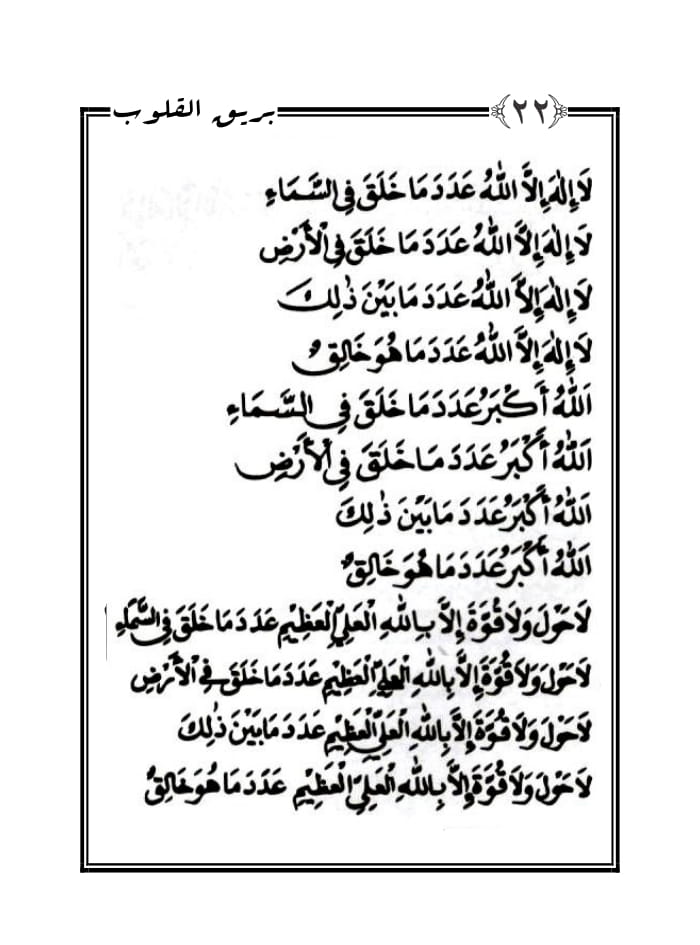 ﴿٢٢﴾ بريق القلوب
لَا إِلٰهَ إِلَّا اللّٰهُ عَدَدَ مَا خَلَقَ فِي السَّمَاءِ
لَا إِلٰهَ إِلَّا اللّٰهُ عَدَدَ مَا خَلَقَ فِي الْأَرْضِ
لَا إِلٰهَ إِلَّا اللّٰهُ عَدَدَ مَا بَيْنَ ذٰلِكَ
لَا إِلٰهَ إِلَّا اللّٰهُ عَدَدَ مَا هُوَ خَالِقٌ
اَللّٰهُ أَكْبَرُ عَدَدَ مَا خَلَقَ فِي السَّمَاءِ
اَللّٰهُ أَكْبَرُ عَدَدَ مَا خَلَقَ فِي الْأَرْضِ
اَللّٰهُ أَكْبَرُ عَدَدَ مَا بَيْنَ ذٰلِكَ
اَللّٰهُ أَكْبَرُ عَدَدَ مَا هُوَ خَالِقٌ
لَا حَوْلَ وَلَا قُوَّةَ إِلَّا بِاللّٰهِ الْعَلِيِّ الْعَظِيْمِ عَدَدَ مَا خَلَقَ فِي السَّمَاءِ
لَا حَوْلَ وَلَا قُوَّةَ إِلَّا بِاللّٰهِ الْعَلِيِّ الْعَظِيْمِ عَدَدَ مَا خَلَقَ فِي الْأَرْضِ
لَا حَوْلَ وَلَا قُوَّةَ إِلَّا بِاللّٰهِ الْعَلِيِّ الْعَظِيْمِ عَدَدَ مَا بَيْنَ ذٰلِكَ
لَا حَوْلَ وَلَا قُوَّةَ إِلَّا بِاللّٰهِ الْعَلِيِّ الْعَظِيْمِ عَدَدَ مَا هُوَ خَالِقٌ